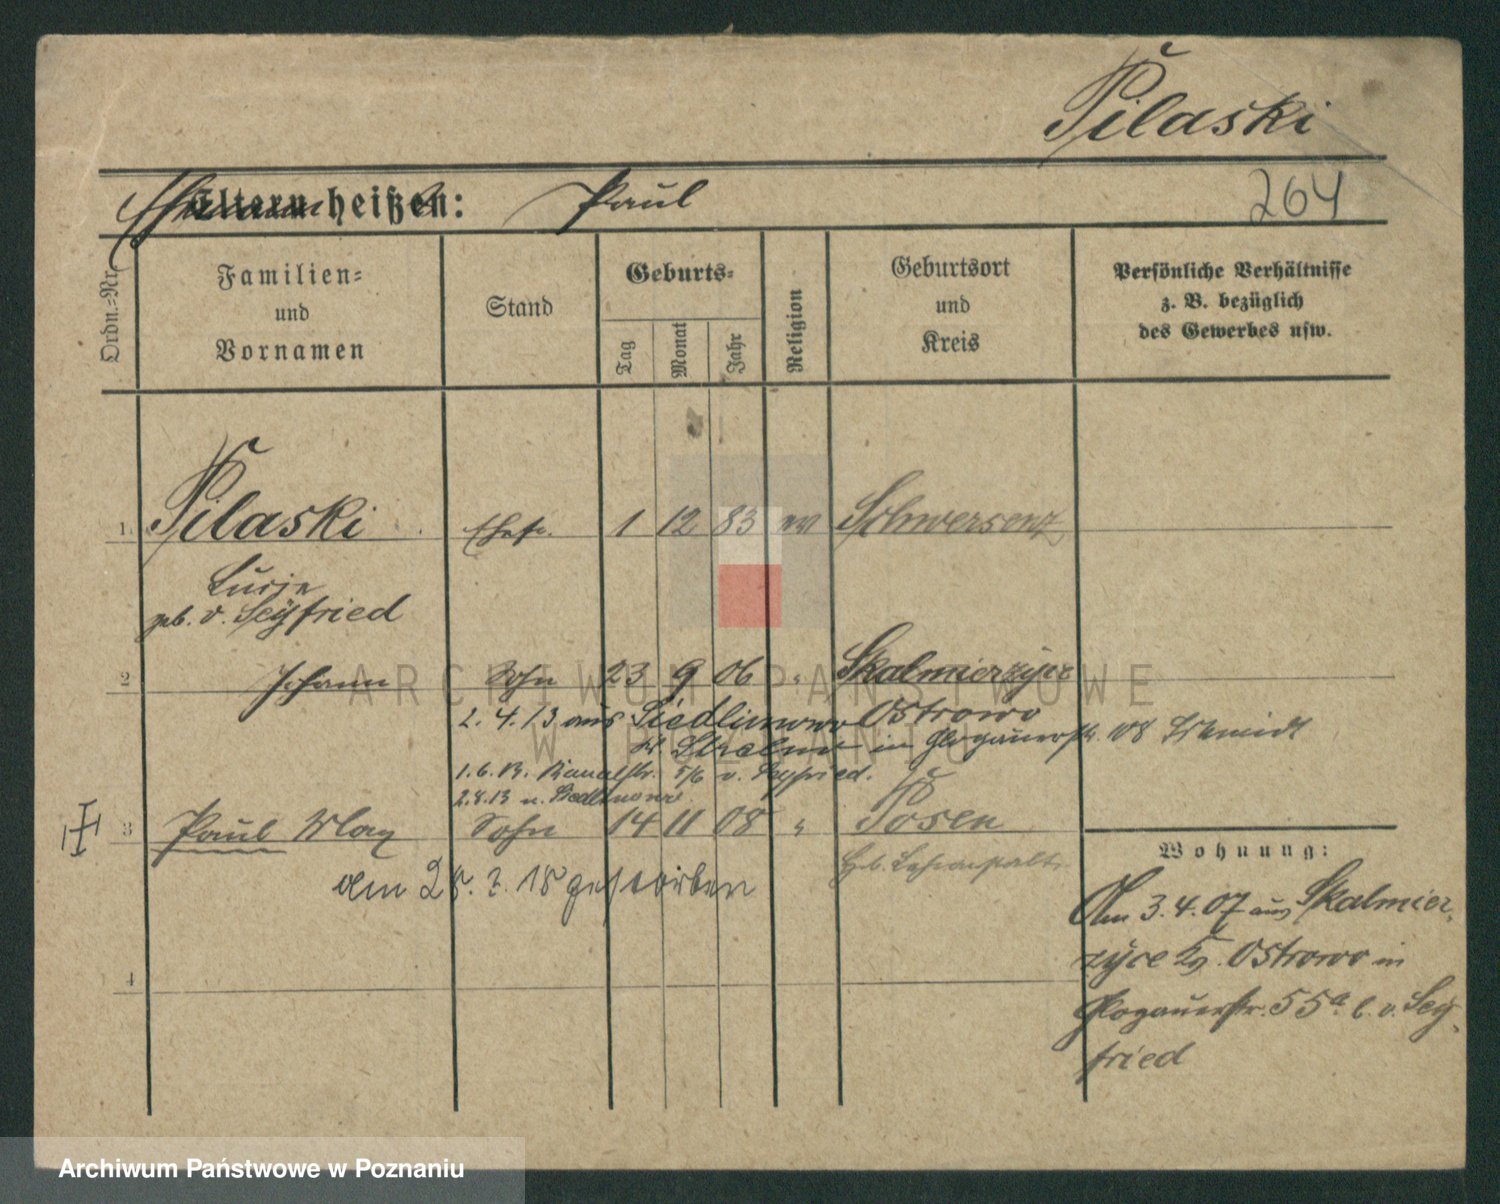 Pilaski
Eltern heißen: Paul
264
Ordn.-Nr.
Familien-
und
Vornamen
Stand
Geburts-
Tag
Monat
Jahr
Religion
Geburtsort
und
Kreis
Persönliche Verhältnisse
z. B. bezüglich
des Gewerbes usw.
1. Pilaski Ehefr. 1 12 83 ev Schwersenz
Lucie
geb. v. Seyfried
2 Johann Sohn 23 9 06 " Skalmierzyce
Ostrowo
2. 4. 13 aus Siedlimowo
Kr. Strelno in Glogauerstr. 108 Schmidt
1. 6. 13. Kanalstr. 5/6 v. Seyfried.
2.8.13 n. Siedlimowo
3 Paul Max Sohn 14 11 08 " Posen
am 25. 2. 15 gestorben
4
Wohnung:
Am 3. 4. 07 aus Skalmier-
zyce Kr. Ostrowo in
Glogauerstr. 55a b. v. Sey-
fried
ARCHIWUM PAŃSTWOWE
W POZNANIU
Archiwum Państwowe w Poznaniu